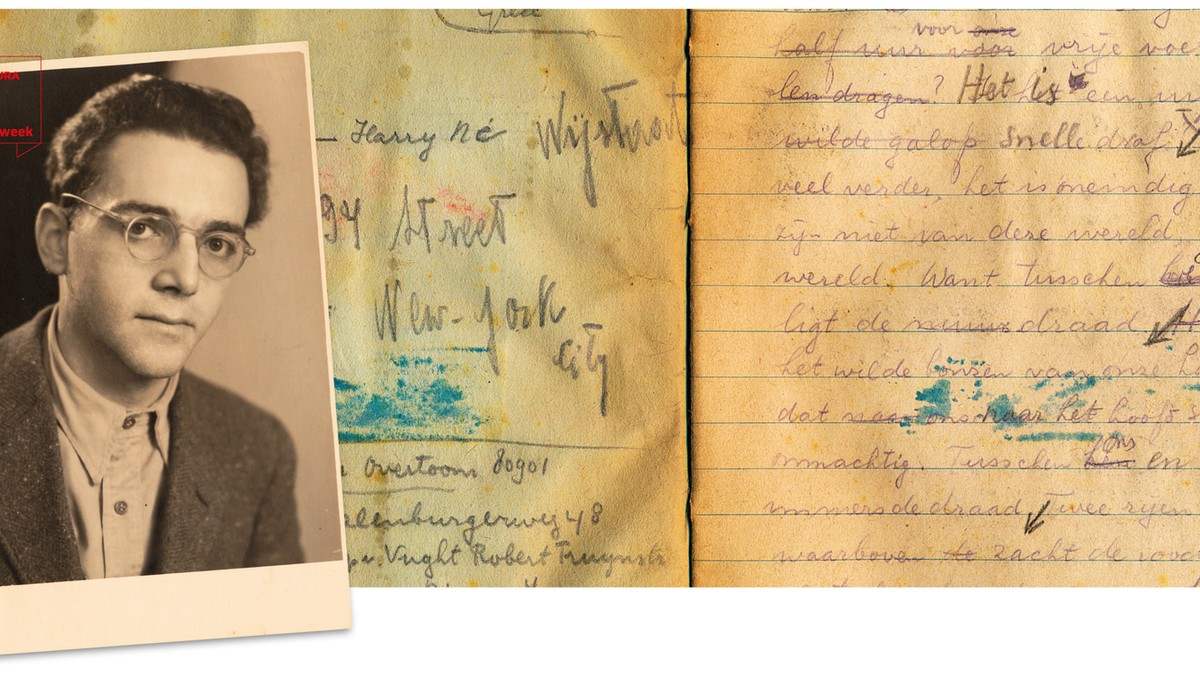 URA
week
Grece
— Harry Né Wijstraat
94 Street
New-York
City
Overtoom 80901
lenburgerweg 48
Vught Robert Fruynstr
voor one
half uur voor vrije voe
len dragen? Het is een
wilde galop snelle draf
veel verder, het is oneindig
zijn niet van deze wereld
wereld. Want tusschen
ligt de draad
het wilde bonzen van onze
dat ons naar het hoofd
onmachtig. Tusschen ons en
immers de draad. Twee rijen
waarboven de zacht de rood